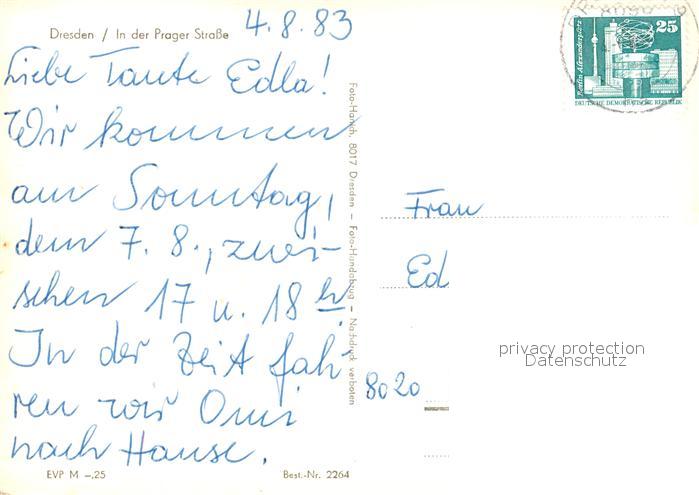 Dresden / In der Prager Straße
4.8.83
Liebe Tante Edla!
Wir kommen
am Sonntag,
dem 7. 8., zwi-
schen 17 u. 18 h
In der Zeit fah-
ren wir Omi
nach Hause.
EVP M –,25
Best.-Nr. 2264
Foto-Hanich, 8017 Dresden – Foto-Handabzug – Nachdruck verboten
25
Berlin-Alexanderplatz
DEUTSCHE DEMOKRATISCHE REPUBLIK
Frau
Ed
8020
privacy protection
Datenschutz